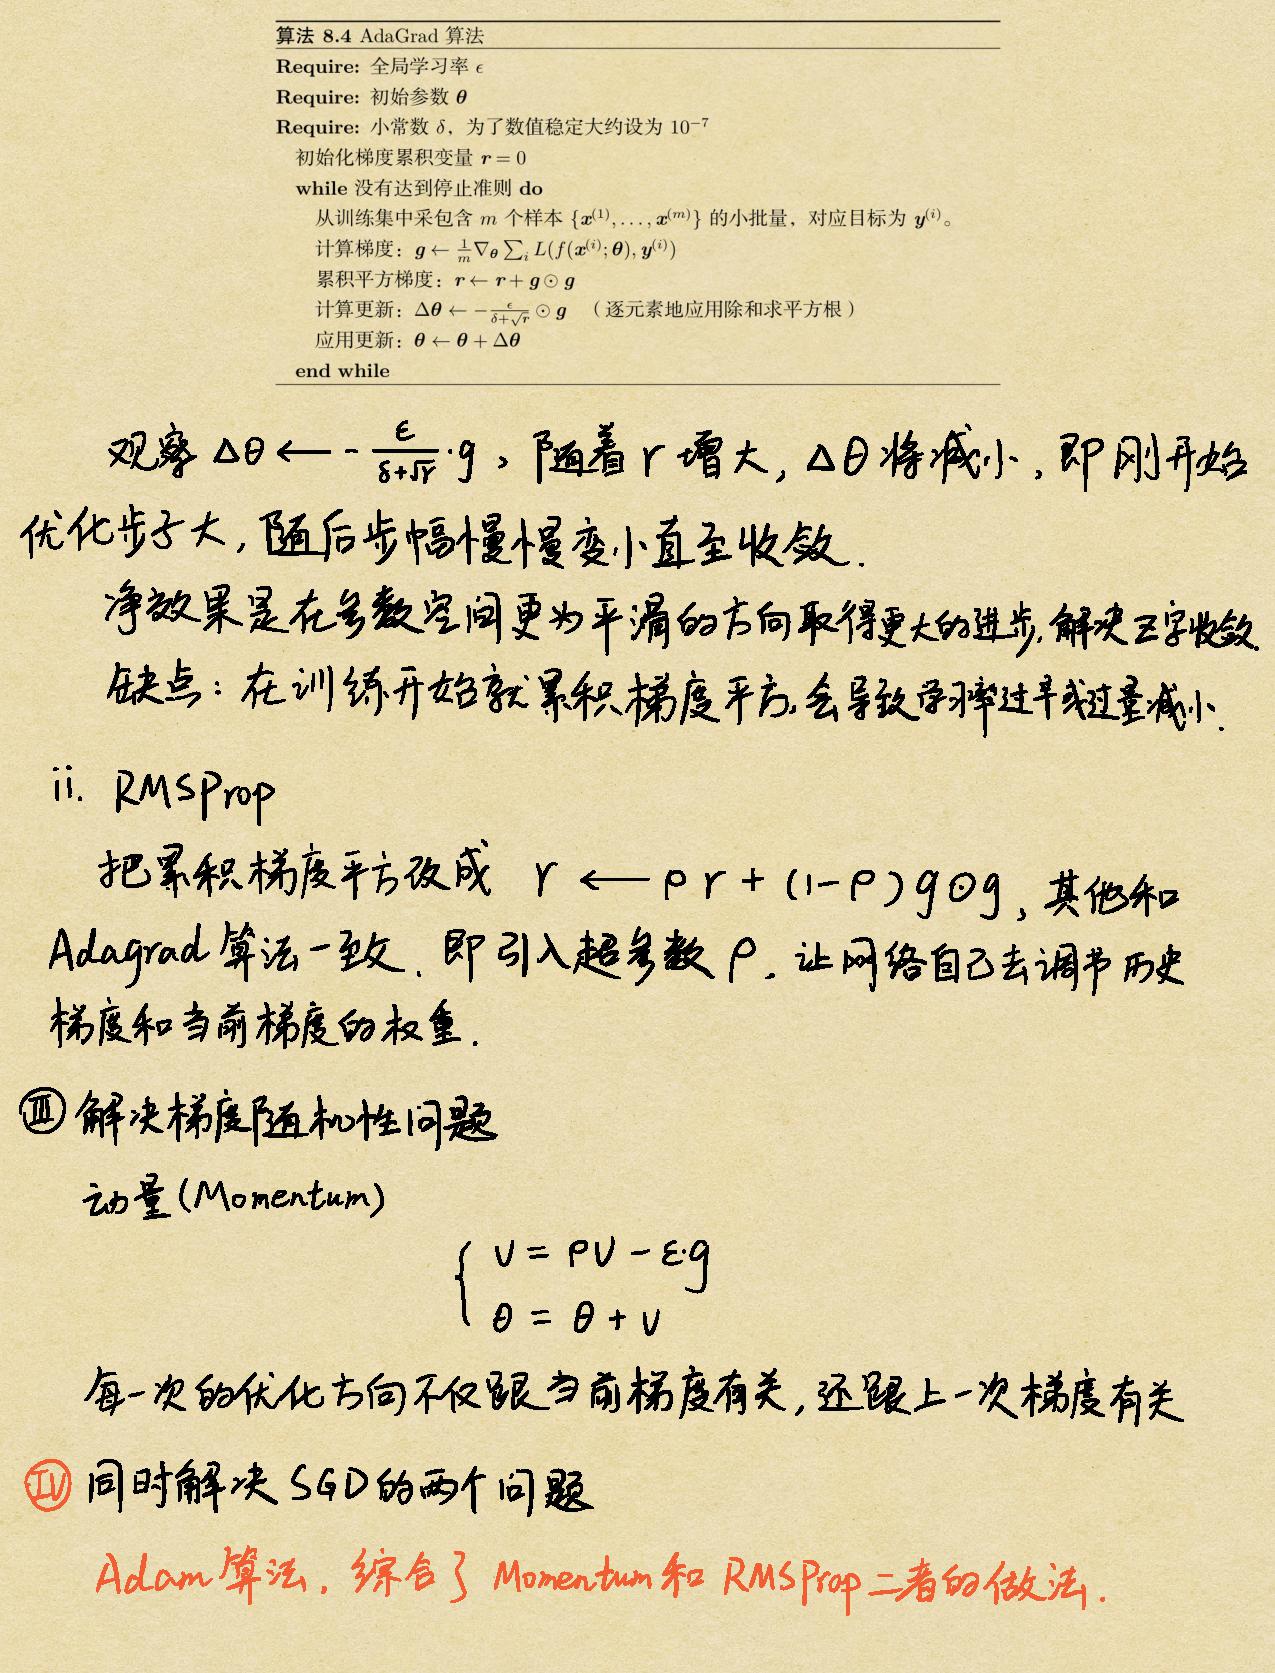 算法 8.4 AdaGrad 算法
Require: 全局学习率 ϵ
Require: 初始参数 θ
Require: 小常数 δ，为了数值稳定大约设为 10⁻⁷
初始化梯度累积变量 r = 0
while 没有达到停止准则 do
从训练集中采包含 m 个样本 {x⁽¹⁾, . . . , x⁽ᵐ⁾} 的小批量，对应目标为 y⁽ⁱ⁾。
计算梯度：g ← 1/m ∇θ ∑ᵢ L(f(x⁽ⁱ⁾; θ), y⁽ⁱ⁾)
累积平方梯度：r ← r + g ⊙ g
计算更新：Δθ ← − ϵ/(δ+√r) ⊙ g （逐元素地应用除和求平方根）
应用更新：θ ← θ + Δθ
end while
观察 Δθ ← - ϵ/(δ+√r) · g，随着 r 增大，Δθ 将减小，即刚开始
优化步子大，随后步幅慢慢变小直至收敛.
净效果是在参数空间更为平滑的方向取得更大的进步,解决之字收敛.
缺点：在训练开始就累积梯度平方,会导致学习率过早或过量减小.
ii. RMSProp
把累积梯度平方改成 r ← ρr + (1-ρ)g⊙g，其他和
Adagrad 算法一致、即引入超参数 ρ，让网络自己去调节历史
梯度和当前梯度的权重.
Ⅲ 解决梯度随机性问题
动量(Momentum)
{ v = ρv - ε·g
θ = θ + v
每一次的优化方向不仅跟当前梯度有关,还跟上一次梯度有关
Ⅳ 同时解决 SGD 的两个问题
Adam 算法，综合了 Momentum 和 RMSProp 二者的做法.